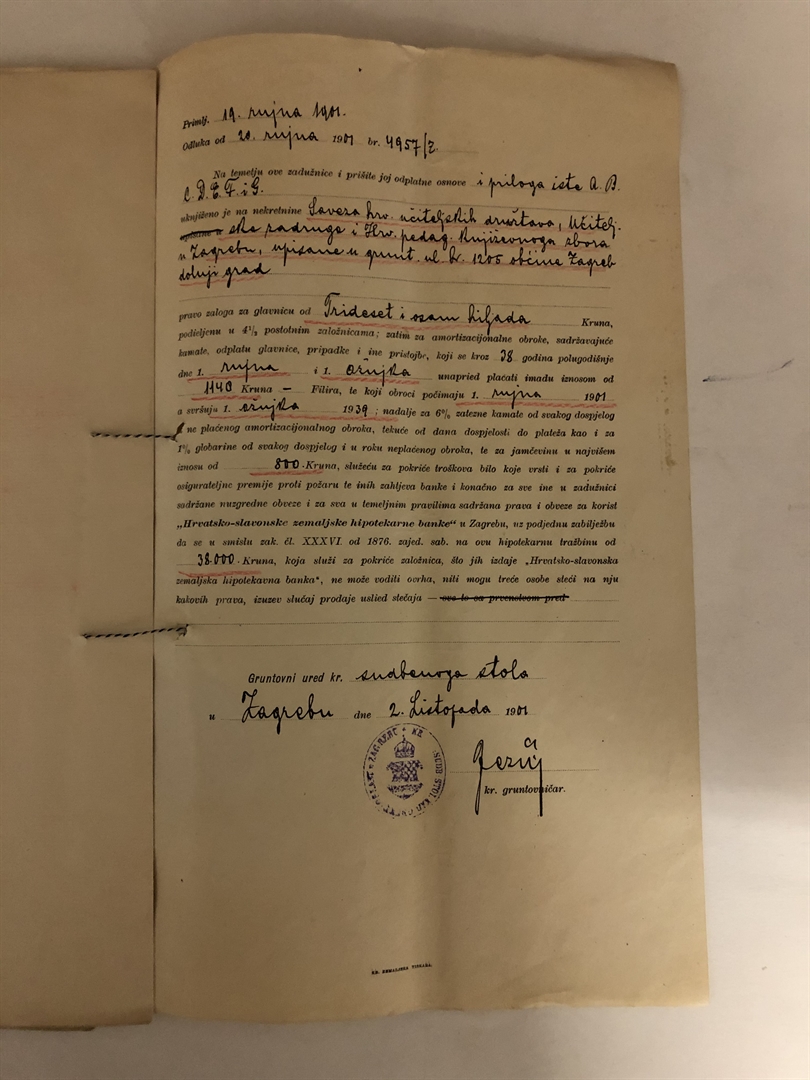 Primlj. 19. rujna 1901.
Odluka od 20. rujna 1901 br. 4957/Z.
Na temelju ove zadužnice i prišite joj odplatne osnove i priloga iste A. B.
C. D. E. F. i G.
uknjiženo je na nekretnine Saveza hrv. učiteljskih društava, Učitelj-
ske zadruge i Hrv. pedag. književnoga zbora
u Zagrebu, upisane u grunt. ul. br. 1205 obćine Zagreb
dolnji grad
pravo zaloga za glavnicu od Trideset i osam hiljada Kruna,
podieljenu u 4½ postotnim založnicama; zatim za amortizacijonalne obroke, sadržavajuće
kamate, odplatu glavnice, pripadke i ine pristojbe, koji se kroz 38 godina polugodišnje
dne 1. rujna i 1. ožujka unapried plaćati imadu iznosom od
1140 Kruna — Filira, te koji obroci počimaju 1. rujna 1901
a svršuju 1. ožujka 1939; nadalje za 6% zatezne kamate od svakog dospjelog
ne plaćenog amortizacijonalnog obroka, tekuće od dana dospjelosti do plateža kao i za
1% globarine od svakog dospjelog i u roku neplaćenog obroka, te za jamčevinu u najvišem
iznosu od 800 Kruna, služeću za pokriće troškova bilo koje vrsti i za pokriće
osigurateljne premije proti požaru te inih zahtjeva banke i konačno za sve ine u zadužnici
sadržane nuzgredne obveze i za sva u temeljnim pravilima sadržana prava i obveze za korist
„Hrvatsko-slavonske zemaljske hipotekarne banke“ u Zagrebu, uz podjednu zabilježbu
da se u smislu zak. čl. XXXVI. od 1876. zajed. sab. na ovu hipotekarnu tražbinu od
38.000 Kruna, koja služi za pokriće založnica, što jih izdaje „Hrvatsko-slavonska
zemaljska hipotekavna banka“, ne može voditi ovrha, niti mogu treće osobe steći na nju
kakovih prava, izuzev slučaj prodaje uslied stečaja — ovo to sa prvenstvom pred
Gruntovni ured kr. sudbenoga stola
u Zagrebu dne 2. Listopada 1901
kr. gruntovničar.
KR. ZEMALJSKA TISKARA.